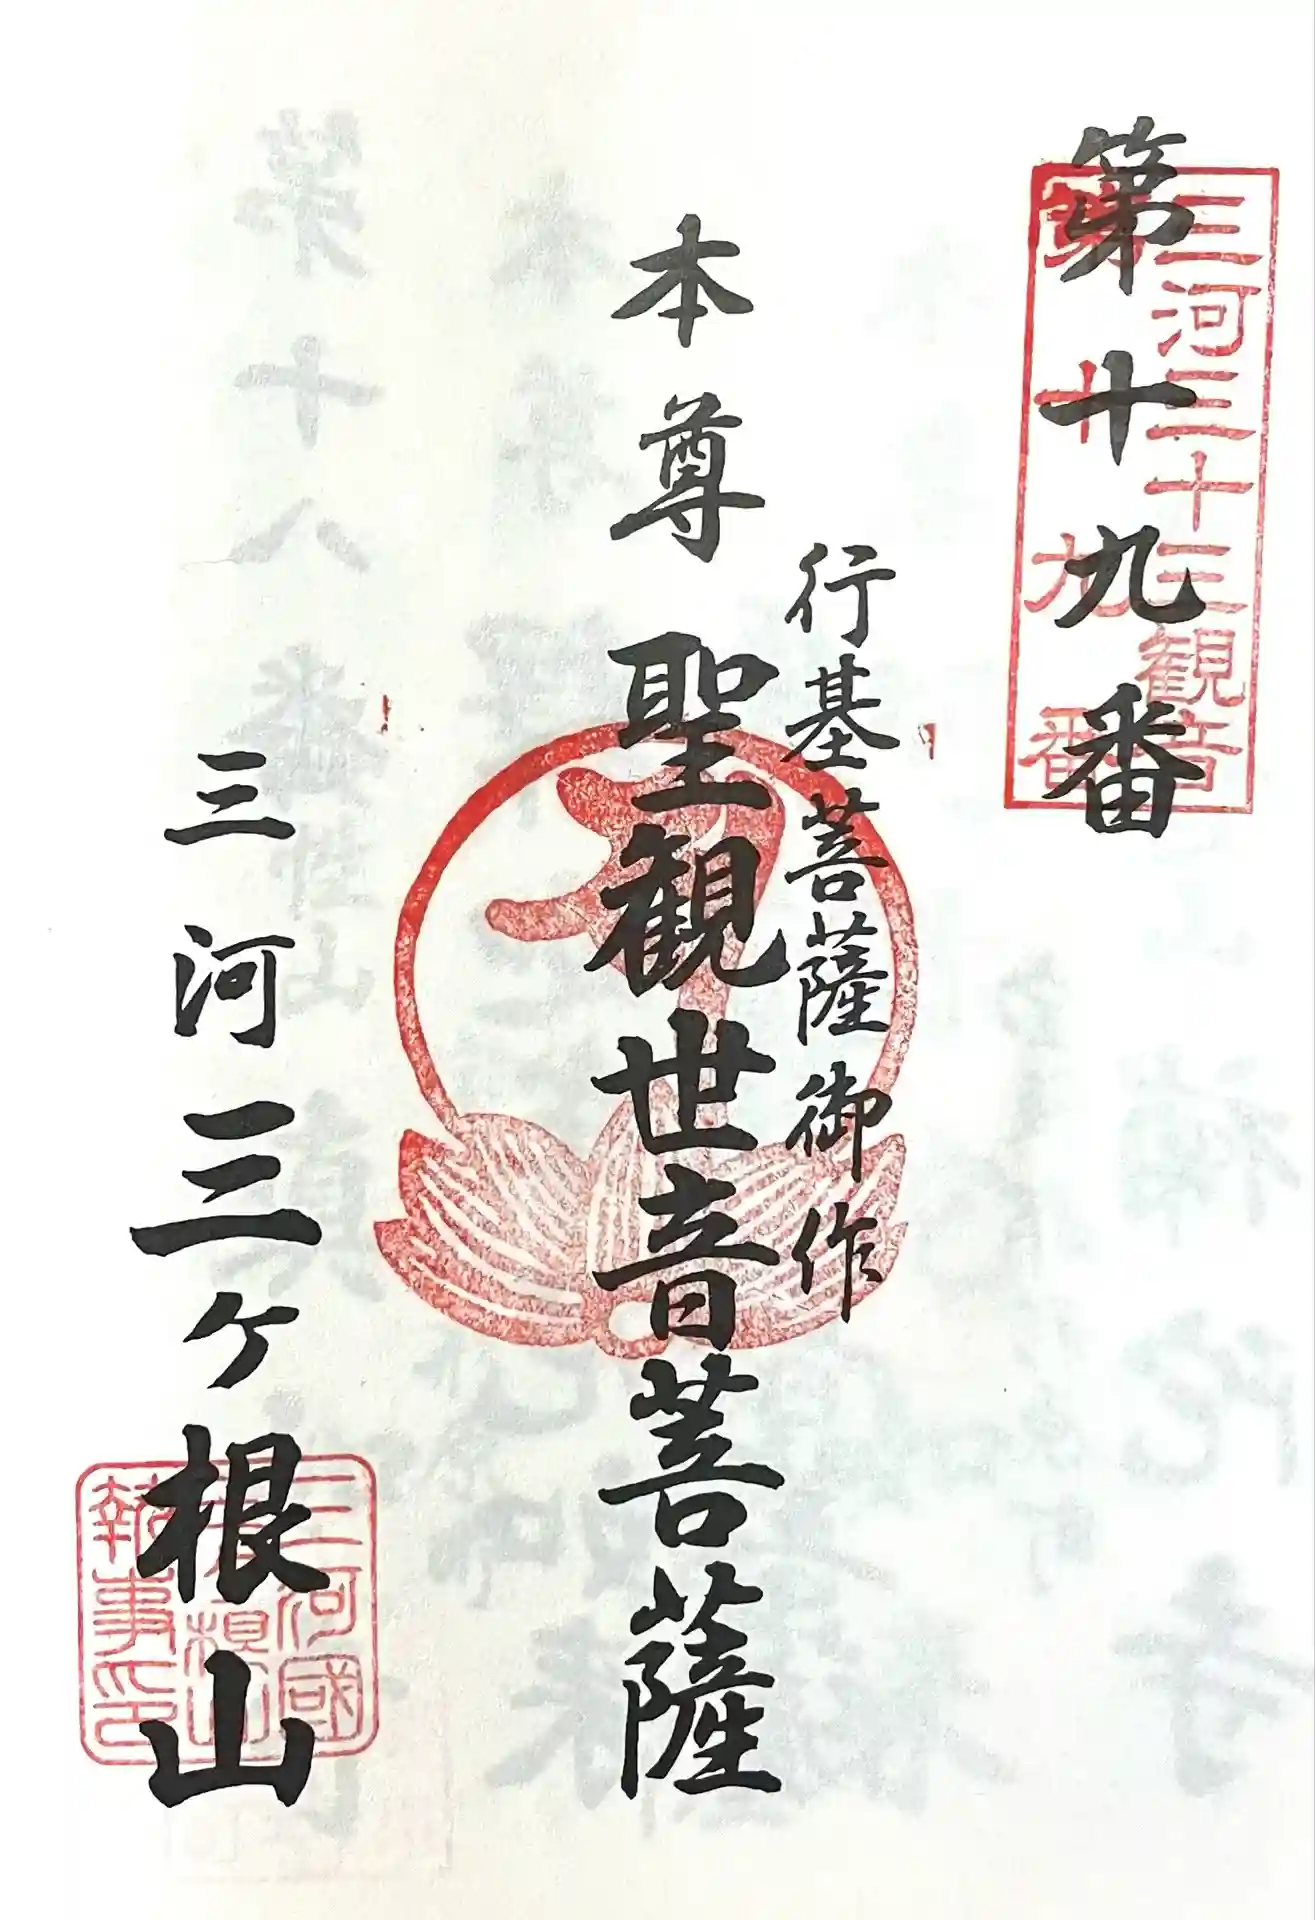 三河三十三観音
第十九番
第十九番
行基菩薩御作
本尊 聖観世音菩薩
三河三ヶ根山
三河國
根山
執事印